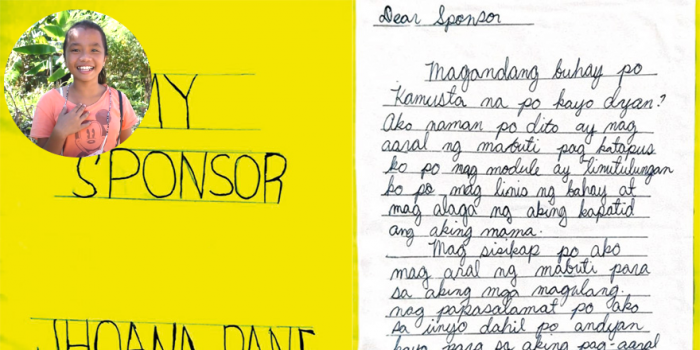 MY
SPONSOR
JHOANA PANE
Dear Sponsor
Magandang buhay po
Kamusta na po kayo dyan?
Ako naman po dito ay nag
aaral ng mabuti pag katapus
ko po nag module ay tinutulungan
ko po mag linis ng bahay at
mag alaga ng aking kapatid
ang aking mama.
Mag sisikap po ako
mag aral ng mabuti para
sa aking mga magulang.
nag papasalamat po ako
sa inyo dahil po andyan
kayo para sa aking pag-aaral